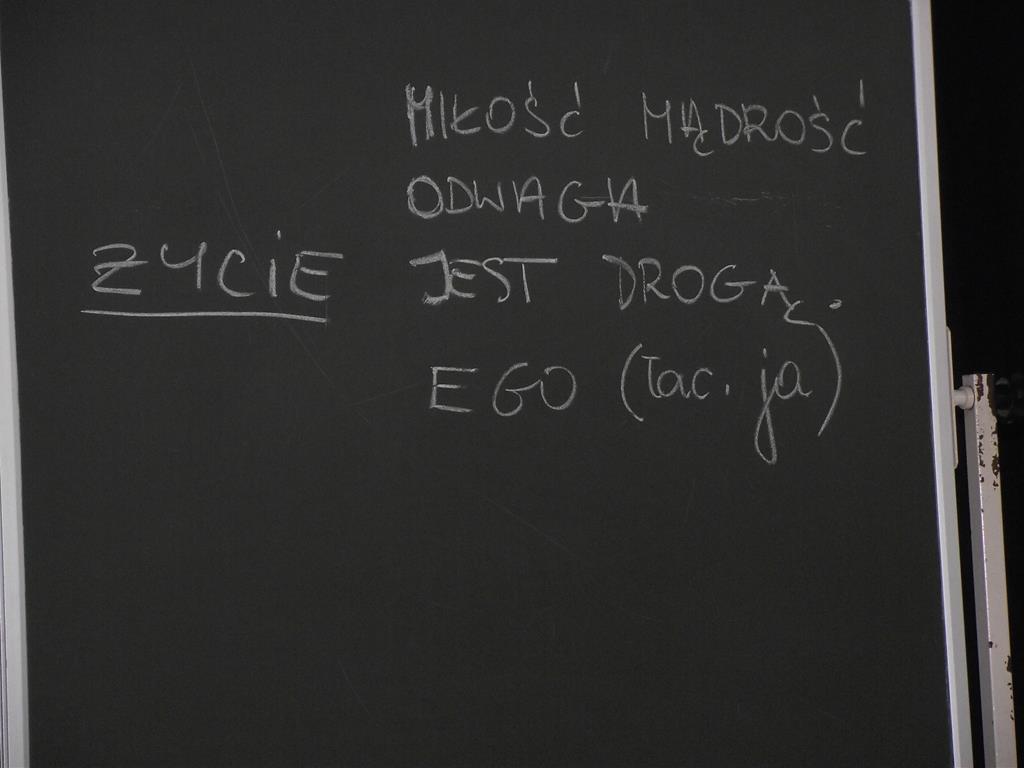 MIŁOŚĆ MĄDROŚĆ
ODWAGA
ZYCiE JEST DROGĄ.
EGO (łac. ja)